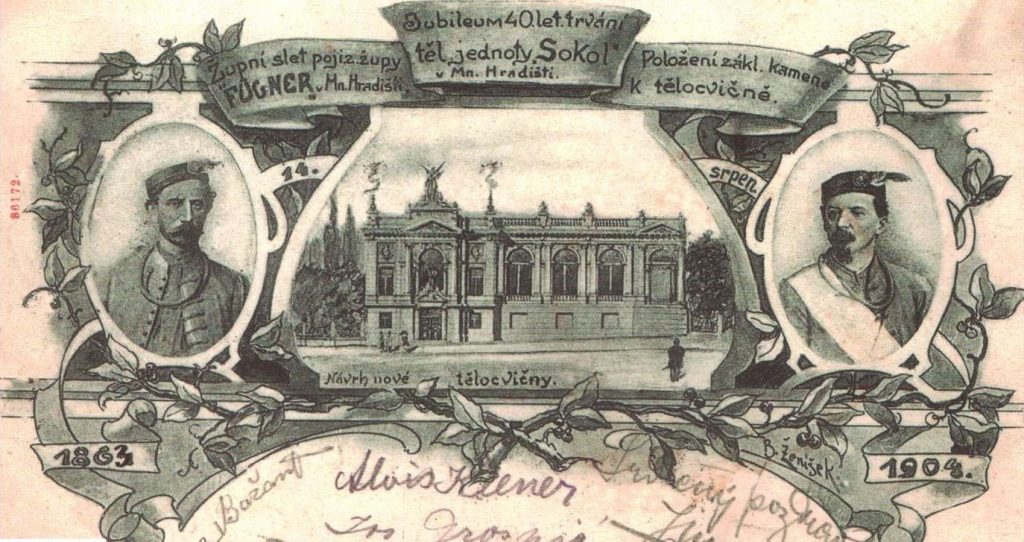 Jubileum 40 let. trvání
těl. jednoty „Sokol"
v Mn. Hradišti.
Župní slet pojiz. župy
"FÜGNER" v Mn. Hradišti.
Položení zákl. kamene
k tělocvičně.
14.
srpen
86172.
Návrh nové tělocvičny.
B. Ženíšek.
1863
1904.
Bažant
Alois
Srdečný pozdrav